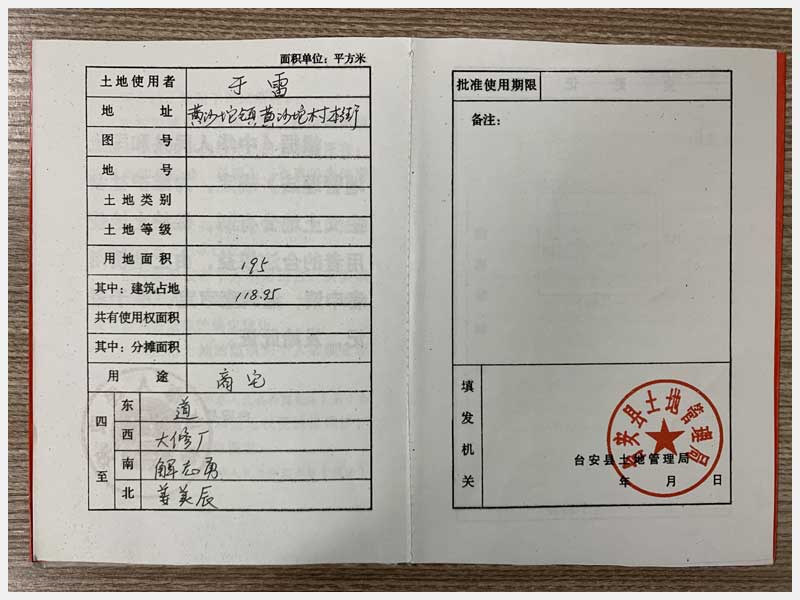 面积单位：平方米
土地使用者 于雷
地 址 黄沙坨镇黄沙坨村本街
图 号
地 号
土地类别
土地等级
用地面积 195
其中：建筑占地 118.95
共有使用权面积
其中：分摊面积
用 途 商宅
四至
东 道
西 大修厂
南 解志勇
北 姜英辰
批准使用期限
备注：
填发机关
台安县土地管理局
台安县土地管理局
年 月 日